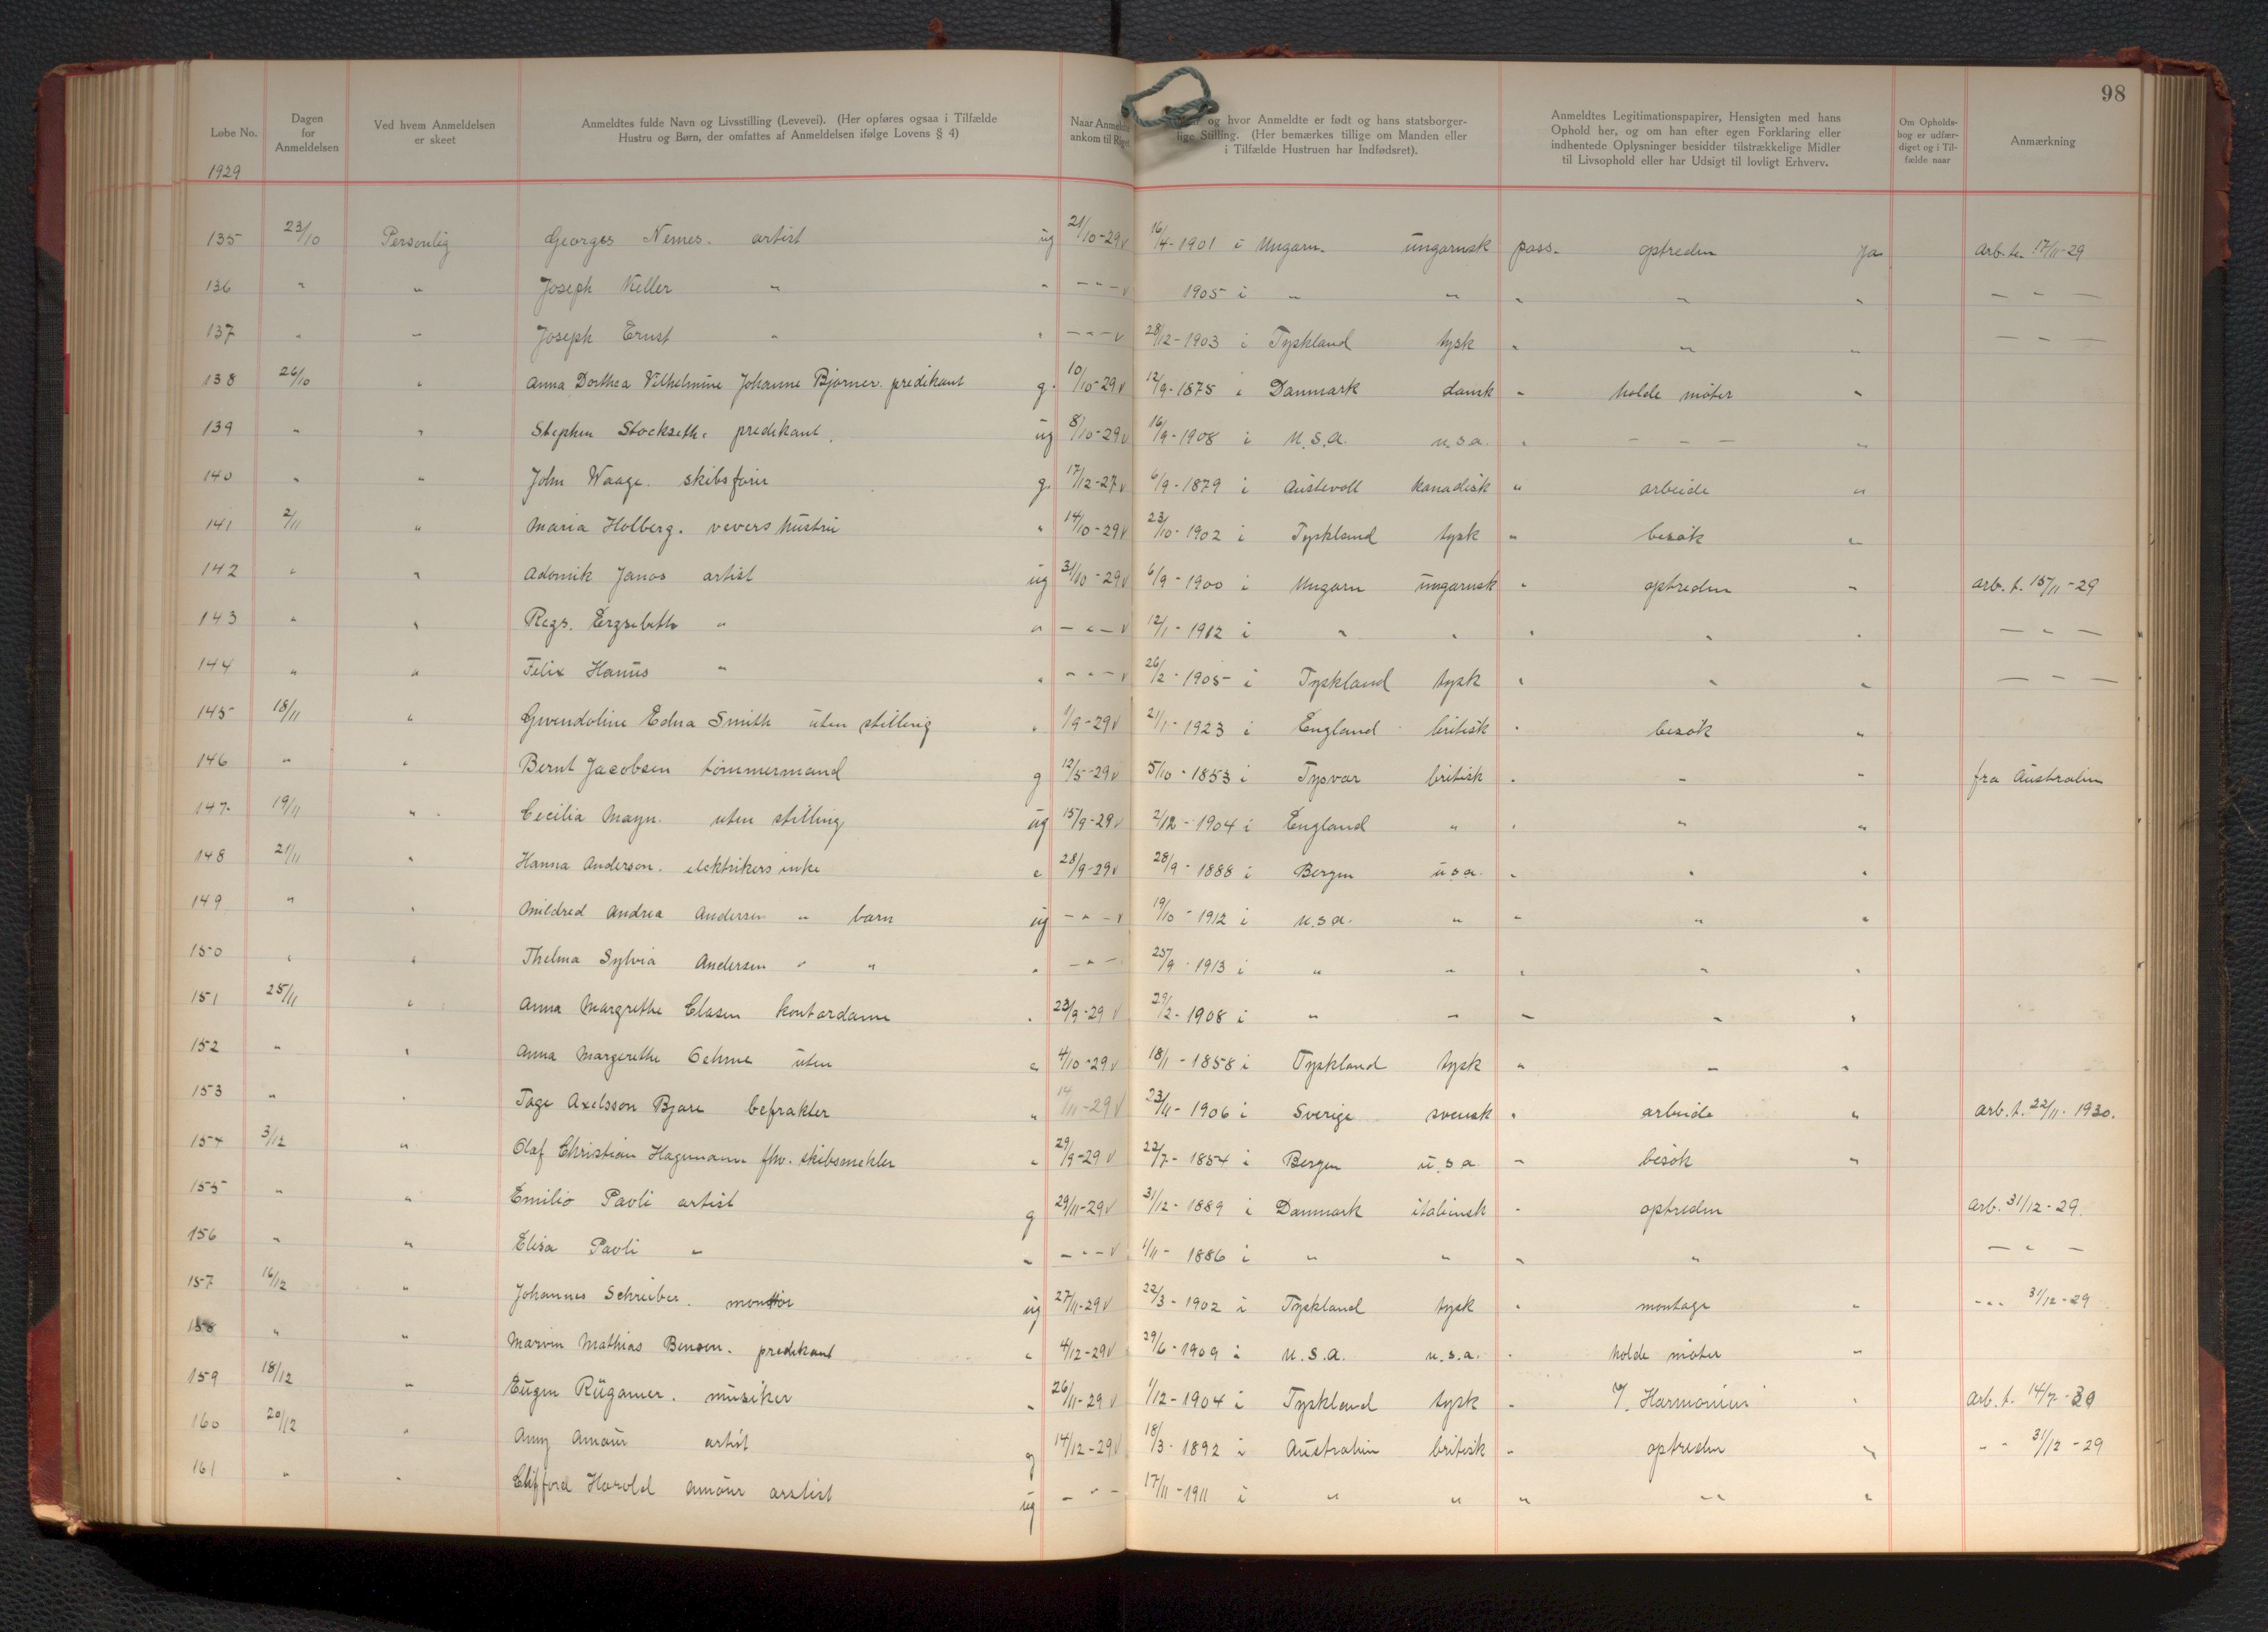 98
Løbe No. Dagen for Anmeldelsen Ved hvem Anmeldelsen er skeet Anmeldtes fulde Navn og Livsstilling (Levevei). (Her opføres ogsaa i Tilfælde Hustru og Børn, der omfattes af Anmeldelsen ifølge Lovens § 4) Naar Anmeldte ankom til Riget og hvor Anmeldte er født og hans statsborgerlige Stilling. (Her bemærkes tillige om Manden eller i Tilfælde Hustruen har Indfødsret). Anmeldtes Legitimationspapirer, Hensigten med hans Ophold her, og om han efter egen Forklaring eller indhentede Oplysninger besidder tilstrækkelige Midler til Livsophold eller har Udsigt til lovligt Erhverv. Om Opholdsbog er udfærdiget og i Tilfælde naar Anmærkning
1929
135 23/10 Personlig Georges Nemes. artist ug 21/10-29 v 16/4-1901 i Ungarn. ungarnsk pass. optreden ja arb. t. 17/11-29
136 " " Joseph Keller " " - " - v 1905 i " " " " " - " -
137 " " Joseph Ernst " " - " - v 28/12-1903 i Tyskland tysk " " " - " -
138 26/10 " Anna Dorthea Vilhelmine Johanne Bjørner. predikant g. 10/10-29 v 12/9-1875 i Danmark dansk " holde møter "
139 " " Stephen Stockseth. predikant. ug 8/10-29 v 16/9-1908 i U.S.A. u.s.a. " - - - "
140 " " John Waage. skibsfører g. 17/12-27 v 6/9-1879 i Austevoll kanadisk " arbeide "
141 2/11 " Maria Holberg. vevers hustru " 14/10-29 v 23/10-1902 i Tyskland tysk " besøk "
142 " " Adomik Janos artist ug 31/10-29 v 6/9-1900 i Ungarn ungarnsk " optreden " arb. t. 15/11-29
143 " " Regs. Erzsebeth " " - " - v 12/1-1912 i " " " " " - " -
144 " " Felix Hanus " " - " - v 26/2-1905 i Tyskland tysk " " " - " -
145 18/11 " Gwendoline Edna Smith uten stilling " 1/9-29 v 21/1-1923 i England britisk " besøk "
146 " " Bernt Jacobsen tømmermand g 12/5-29 v 5/10-1853 i Tysvær britisk " " " fra Australien
147 19/11 " Cecilia Mayn. uten stilling ug 15/9-29 v 2/12-1904 i England " " " "
148 21/11 " Hanna Anderson. elektrikers enke e 28/9-29 v 28/9-1888 i Bergen u.s.a. " " "
149 " " Mildred Andrea Andersen " barn ug - " - v 19/10-1912 i u.s.a. " " " "
150 " " Thelma Sylvia Andersen " " " - " - 25/9-1913 i " " " " "
151 25/11 " Anna Margrethe Clasen kontordame " 23/9-29 v 29/2-1908 i " " " " "
152 " " Anna Margarethe Oehme uten " 4/10-29 v 18/1-1858 i Tyskland tysk " " "
153 " " Tage Axelsson Bjare befrakter " 14/11-29 v 23/11-1906 i Sverige svensk " arbeide " arb. t. 22/11-1930.
154 3/12 " Olaf Christian Hagemann fhv. skibsmekler " 29/9-29 v 22/7-1854 i Bergen u.s.a. " besøk "
155 " " Emilio Pavli artist g 29/11-29 v 31/12-1889 i Danmark italiensk " optreden arb. 31/12-29.
156 " " Elisa Pavli " " - " - v 1/11-1886 i " " " " - " -
157 16/12 " Johannes Schreiber. montør ug 27/11-29 v 22/3-1902 i Tyskland tysk " montage " " " 31/12-29
158 " " Marvin Mathias Benson. predikant " 4/12-29 v 29/6-1909 i U.S.A. u.s.a. " holde møter "
159 18/12 " Eugen Rügamer. musiker " 26/11-29 v 1/12-1904 i Tyskland tysk " Harmonien " arb. t. 14/7-30
160 20/12 " Amy Amour artist g 14/12-29 v 18/3-1892 i Australien britisk " optreden " " " 31/12-29
161 " " Clifford Harold Amour artist ug - " - 17/11-1911 i " " " " "